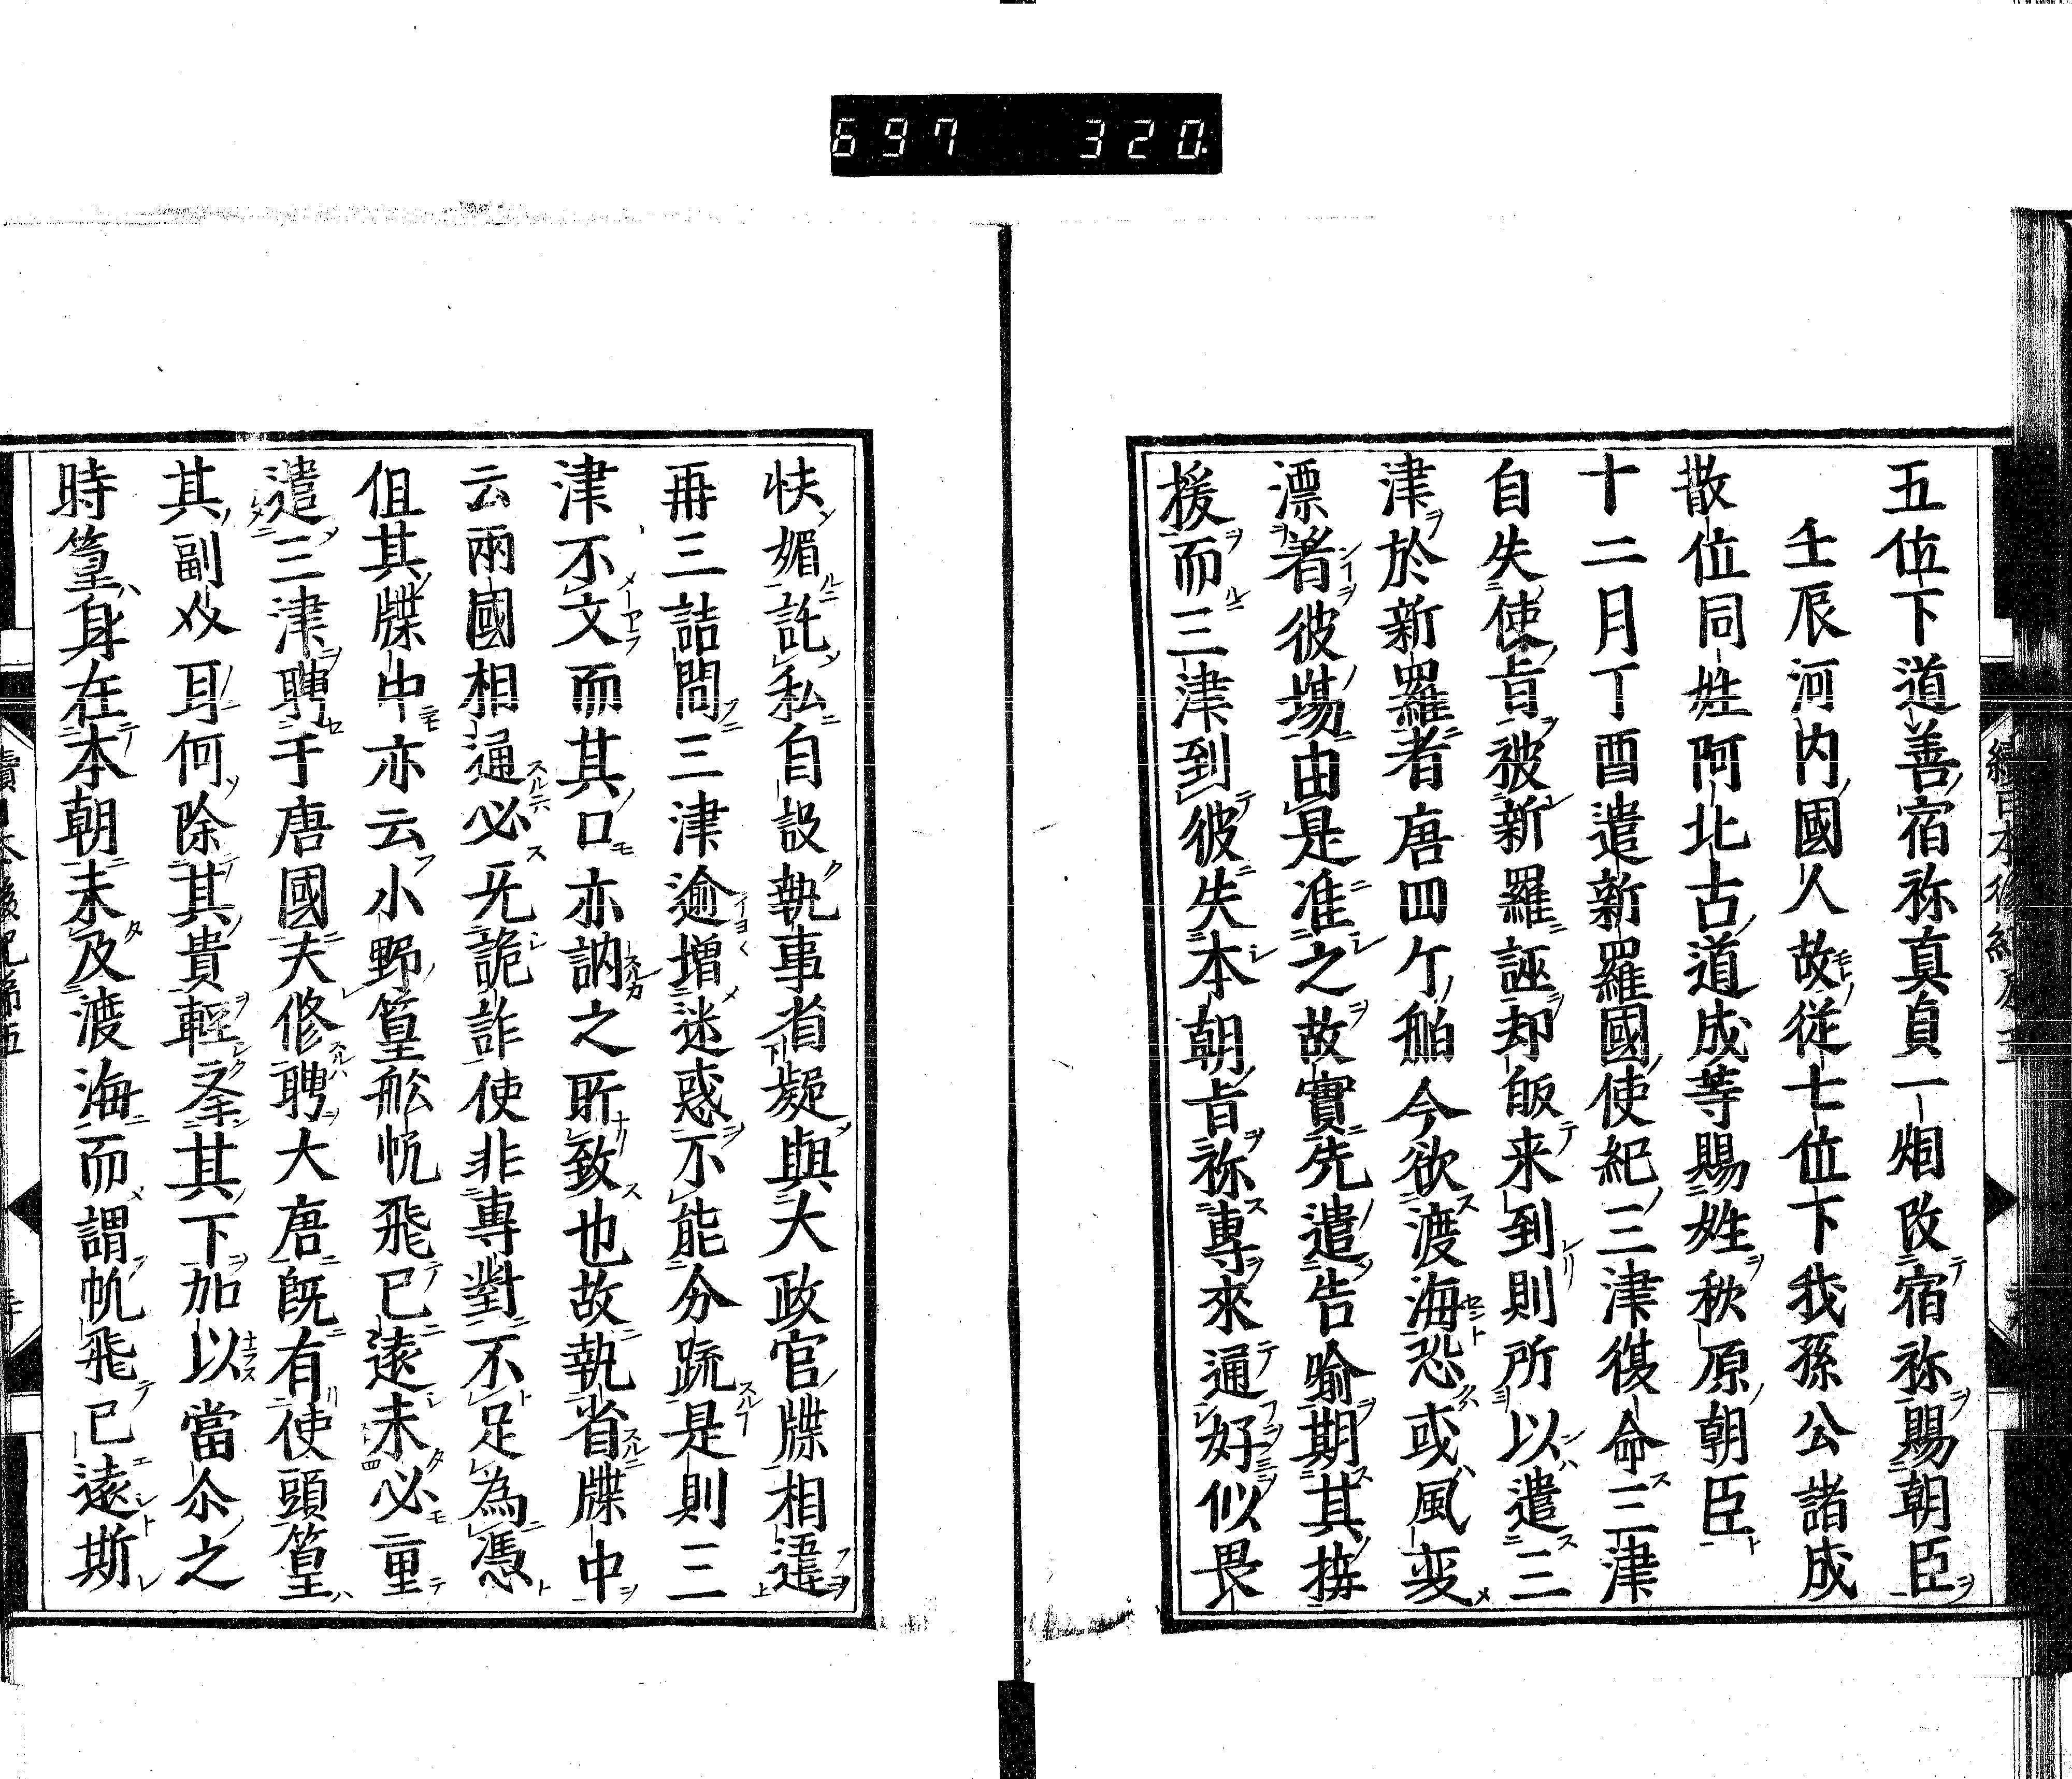 697 320
五位下道善宿祢真貞一烟改宿祢賜朝臣
壬辰河内國人故従七位下我孫公諸成
散位同姓阿北古道成等賜姓秋原朝臣
十二月丁酉遣新羅國使紀三津復命三津
自失使旨被新羅誣却皈来到則所以遣三
津於新羅者唐四ケ舶今欲渡海恐或風変
漂著彼堺由是准之故實先遣告喻期其接
援而三津到彼失本朝旨祢專來通好似畏
怯媚託私自設執事省疑與大政官牒相違
再三詰問三津逾增迷惑不能分䟽是則三
津不文而其口亦訥之所致也故執省牒中
云兩國相通必旡詭詐使非專對不足為憑
但其牒中亦云小野篁舩帆飛已遠未必重
遣三津聘于唐國夫修聘大唐既有使頭篁
其副介耳何除其貴輕舉其下加以當尒之
時篁身在本朝未及渡海而謂帆飛已遠斯